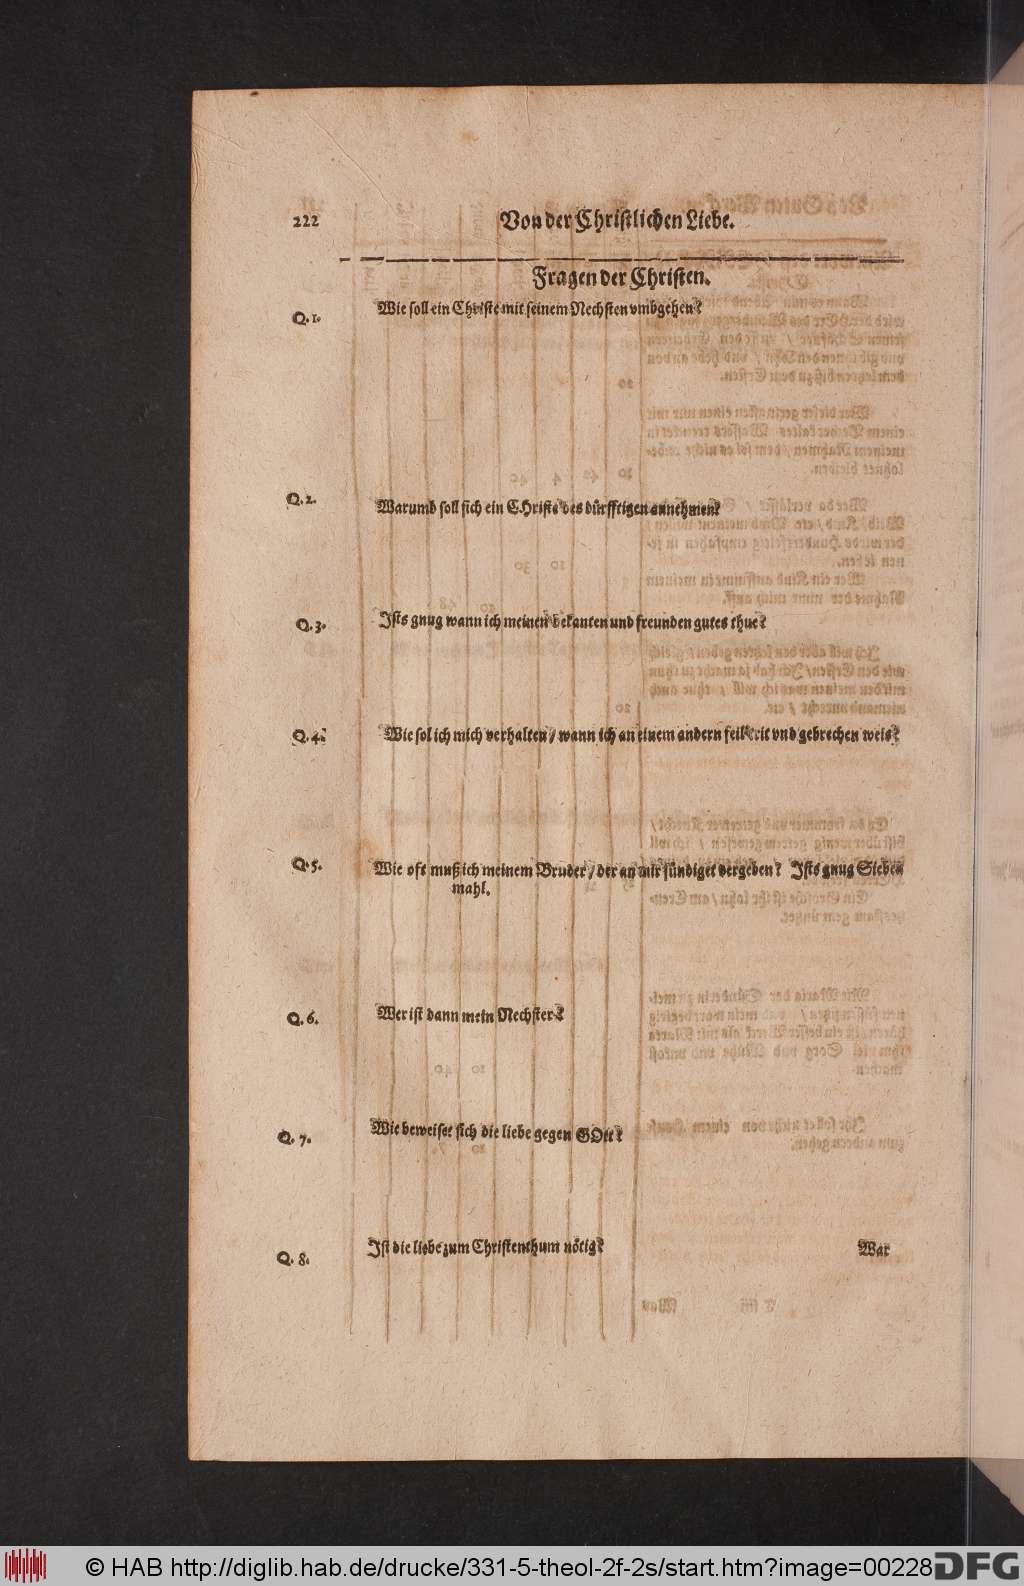 222
Von der Christlichen Liebe.
Fragen der Christen.
Q. 1.
Wie soll ein Christe mit seinem Nechsten vmbgehen?
Q. 2.
Warumb soll sich ein CHriste des dürfftigen annehmen?
Q. 3.
Ists gnug wann ich meinen bekanten und freunden gutes thue?
Q. 4.
Wie sol ich mich verhalten / wann ich an einem andern vnd gebrechen weis?
Q. 5.
Wie oft muß ich meinem Bruder / der an mir sündiget vergeben? Ists gnug Sieben
mahl.
Q. 6.
Wer ist dann mein Nechster?
Q. 7.
Wie beweiset sich die liebe gegen GOtt?
Q. 8.
Ist die liebe zum Christenthum nötig?
War
© HAB http://diglib.hab.de/drucke/331-5-theol-2f-2s/start.htm?image=00228
DFG